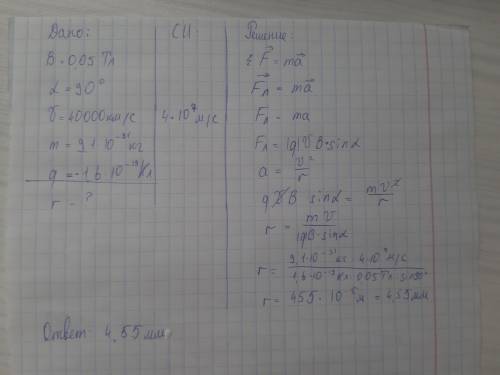 Дано:
B = 0.05 Тл
α = 90°
v = 40000 км/с
m = 9.1·10⁻³¹ кг
q = -1.6·10⁻¹⁹ Кл
r - ?
СИ
4·10⁷ м/с
Решение:
Σ F⃗ = ma⃗
F⃗л = ma⃗
Fл = ma
Fл = |q|vB·sinα
a = v²/r
qvB sinα = mv²/r
r = mv/|q|B·sinα
r = 9,1·10⁻³¹ кг·4·10⁷ м/с / 1,6·10⁻¹⁹ Кл·0.05 Тл·sin90°
r = 455·10⁻⁵ м = 4,55 мм
Ответ: 4,55 мм